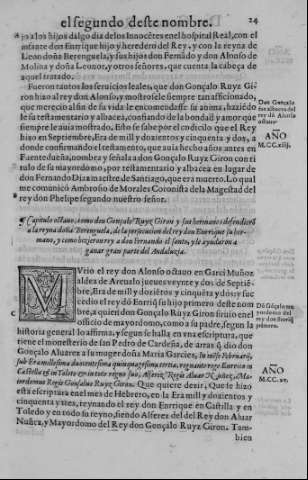 el segundo deste nombre. 24
Ajo a los hijos dalgo dia de los Inocétes en el hospital Real, con el
infante don Enrrique hijo y heredero del Rey, y con la reyna de
Leon doña Berenguela, y sus hijos don Fernádo y don Alonso de
Molina y doña Leonor, y otros señores, que cuenta la cabeça de
aquel tratado.
Fueron tantos los seruicios leales, que don Gonçalo Ruyz Gi-
ron hizo al rey don Alonso, y mostrosele siempre tan afficionado,
que merecio al fin de su vida le encomendasse su anima, haziédo
le su testamentario y albacea, confiando de la bondad y amor que
siempre le auia mostrado. Esto se sabe por el codicilo que el Rey
hizo en Septiembre, Era de mill y dozientos y cinquenta y dos, a
donde confirmando el testamento, que auia hecho años antes en
Fuentedueña, nombra y señala a don Gonçalo Ruyz Giron con el ti
tulo de su mayordomo, por testamentario y albacea en lugar de
don Fernando Diaz maestre de Santiago, que era muerto. Lo qual
me comunicó Ambrosio de Morales Coronista de la Magestad del
rey don Phelipe segundo nuestro señor.
Don Gonçalo
fue albacea del
rey dõ Alonso
octauo
AÑO
M.CC.xiiij.
Capitulo octauo, como don Gonçalo Ruyz Giron y sus hermanos defendieró
a la reyna doña Berenguela, de la persecucion del rey don Enrrique su her-
mano, y como hizieron rey a don Fernando el santo, y le ayudaron a
ganar gran parte del Andaluzia.
MVrio el rey don Alonso octauo en Garci Muñoz
aldea de Areualo jueues veynte y dos de Septié-
bre, Era de mill y doziétos y cinquéta y dos: y suc
cedio el rey dõ Enrriq̃ su hijo primero deste nom
bre, a quien don Gonçalo Ruyz Giron siruio en el
officio de mayordomo, como a su padre, segun la
historia general lo affirma, y segun se halla en vna escriptura, que
tiene el monesterio de san Pedro de Cardeña, de arras q̃ dio don
Gonçalo Aluarez a su muger doña Maria Garcies, In mése Februarij,
sub Era millesima ducentesima quinquagesima tertia, regnante rege Enrrico in
Castella & in Toleto & in toto regno suo, Alferiz Regis Aluar Nuñez, Ma-
iordomus Regis Gonçaluus Ruyz Giron. Que quiere dezir, Que se hizo
esta escriptura en el mes de Hebrero, en la Era mill y dozientos y
cinquenta y tres, reynando el rey don Enrrique en Castilla y en
Toledo y en todo su reyno, siendo Alferez del Rey don Aluar
Nuñez, y Mayordomo del Rey don Gonçalo Ruyz Giron. Tam-
bien
Dõ Gõçalo ma
yordomo del
rey don Enrriq̃
primero.
AÑO
M.CC.xv.
C